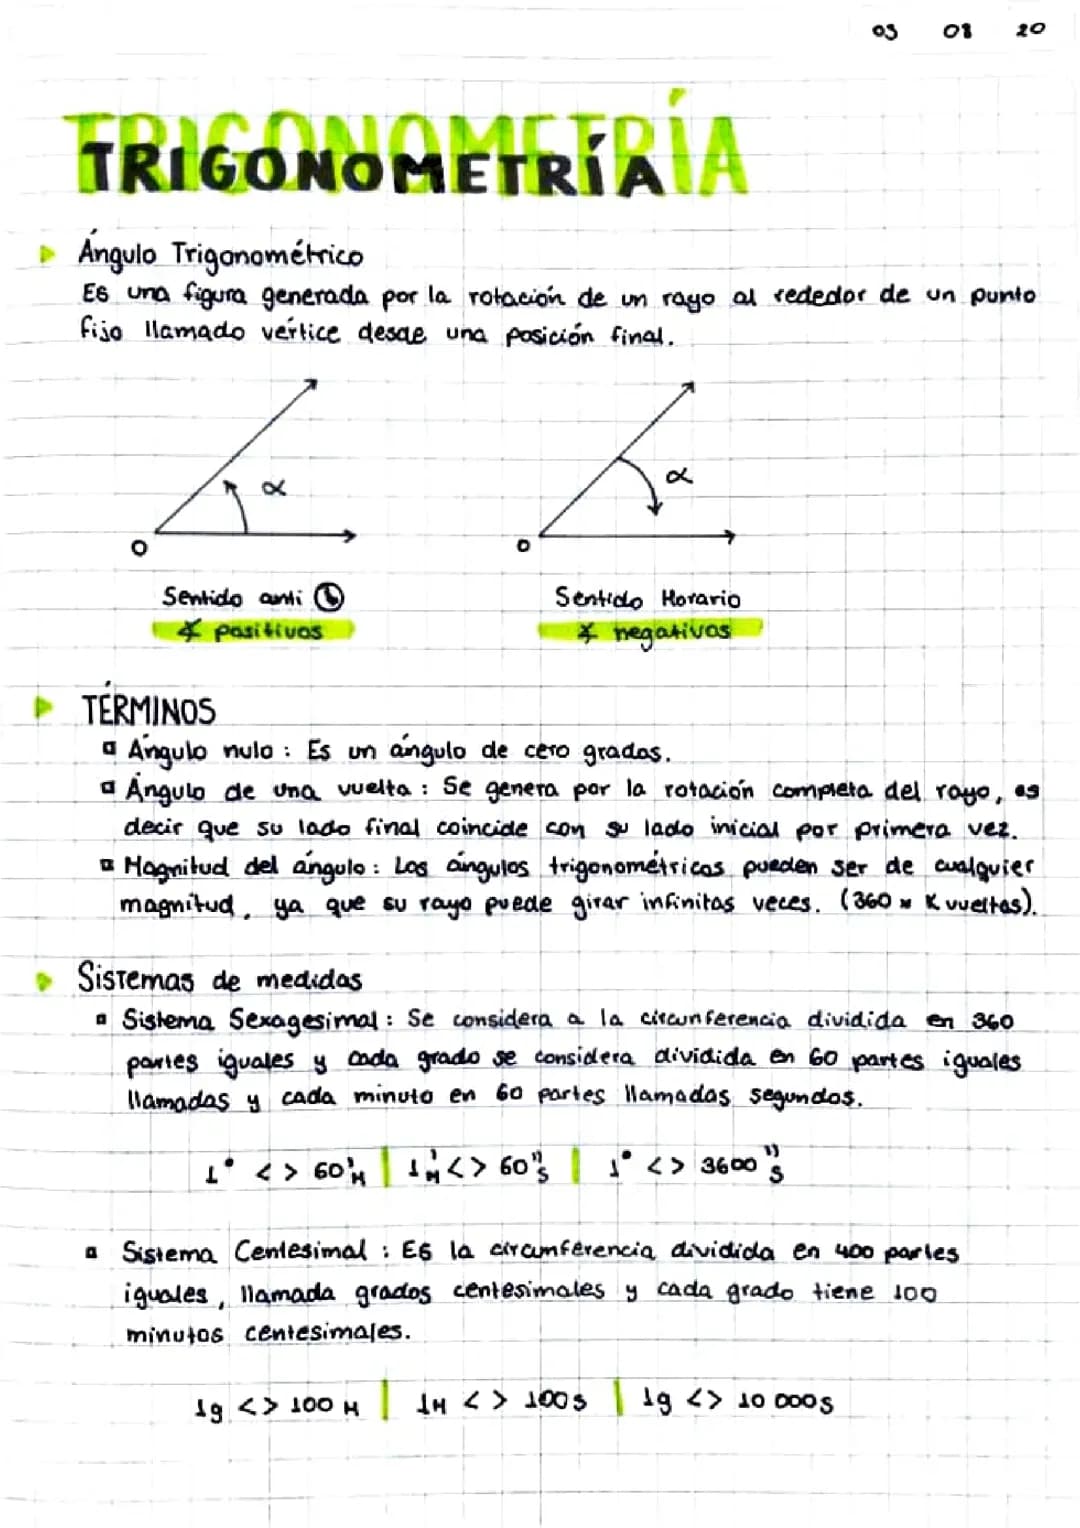 03 08 20
TRIGONOMETRÍA
TRIGONOMETRÍA
Ángulo Trigonométrico
Es una figura generada por la rotación de un rayo al rededor de un punto
fijo llamado vértice desde una posición final.
α
α
O
O
Sentido anti
Sentido Horario
∡ positivos
∡ negativos
TÉRMINOS
Ángulo nulo : Es un ángulo de cero grados.
Ángulo de una vuelta : Se genera por la rotación completa del rayo, es
decir que su lado final coincide con su lado inicial por primera vez.
Magnitud del ángulo : Los ángulos trigonométricos pueden ser de cualquier
magnitud, ya que su rayo puede girar infinitas veces. (360 x K vueltas).
Sistemas de medidas
Sistema Sexagesimal : Se considera a la circunferencia dividida en 360
partes iguales y cada grado se considera dividida en 60 partes iguales
llamadas y cada minuto en 60 partes llamadas segundos.
1° <> 60' M | 1' M <> 60'' S | 1° <> 3600'' S
Sistema Centesimal : Es la circunferencia dividida en 400 partes
iguales, llamada grados centesimales y cada grado tiene 100
minutos centesimales.
1g <> 100 M | 1M <> 100S | 1g <> 10 000S